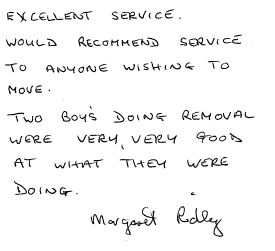 EXCELLENT SERVICE.
WOULD RECOMMEND SERVICE
TO ANYONE WISHING TO
MOVE.
TWO BOY'S DOING REMOVAL
WERE VERY, VERY GOOD
AT WHAT THEY WERE
DOING.
Margaret Ridley